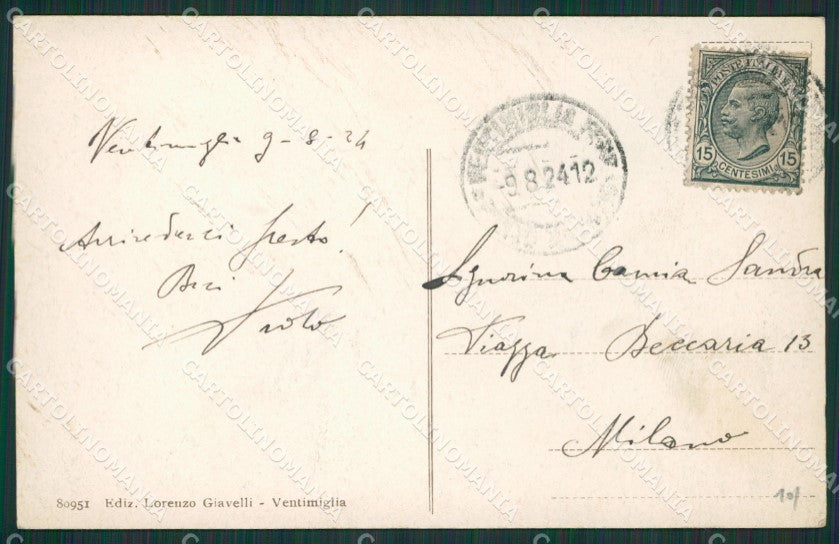 Ventimiglia 9-8-24
Arrivederci presto!
Baci
VENTIMIGLIA
9.8.24 12
POSTE ITALIANE
15 15
CENTESIMI
Signorina Camia Sandra
Piazza Beccaria 13
Milano
80951 Ediz. Lorenzo Giavelli - Ventimiglia
CARTOLINOMANIA